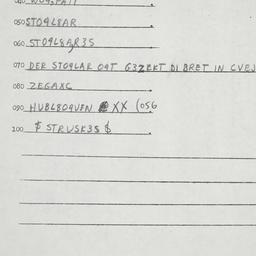 050 STO9L8AR
060 STO9L8AR3S
070 DER STO9LAR O9T G3ZEKT DI BRET IN CVEJ
080 ZEGAXC
090 HUBL8O9VEN XX (056
100 $ STRUSK3S $